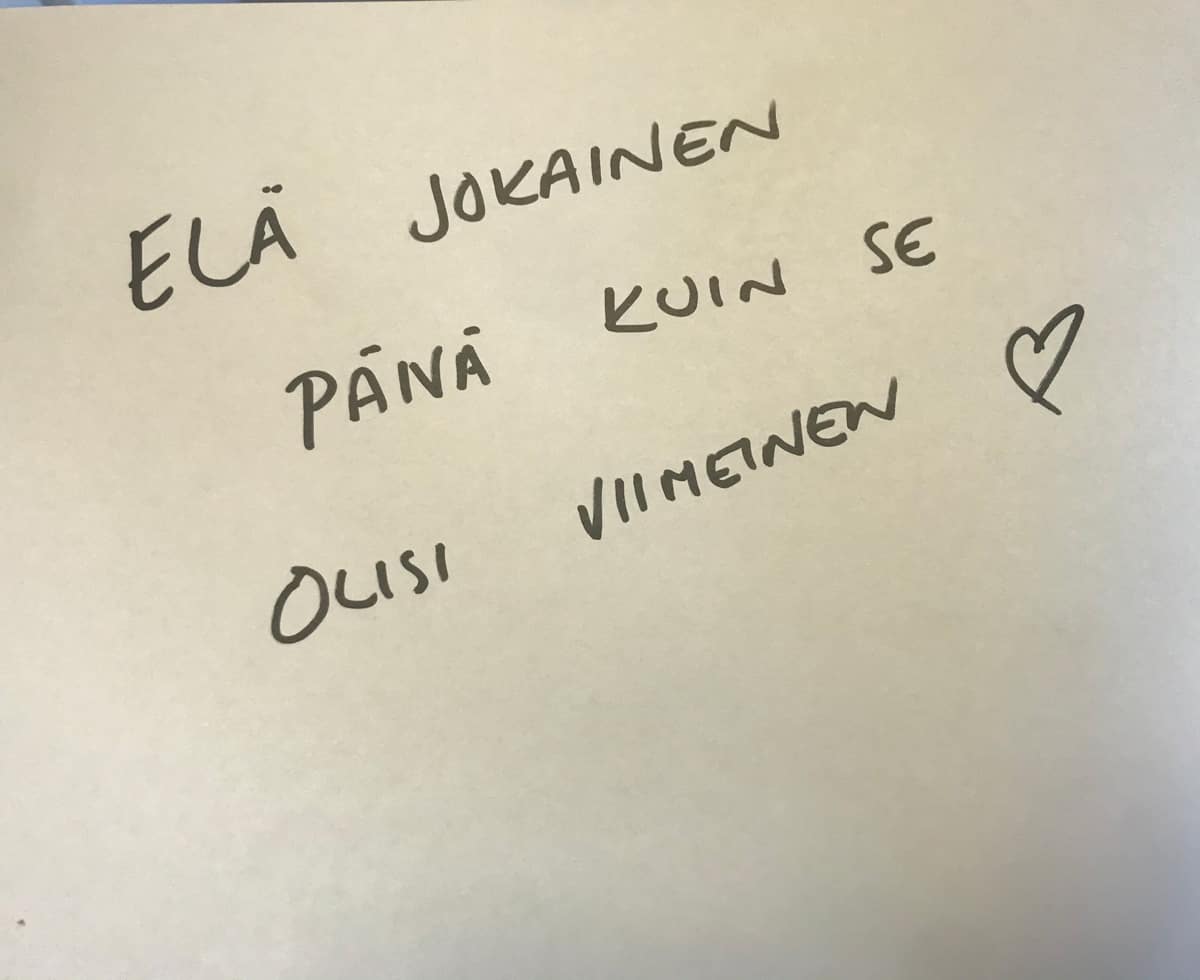 ELÄ JOKAINEN
PÄIVÄ KUIN SE
OLISI VIIMEINEN ♡